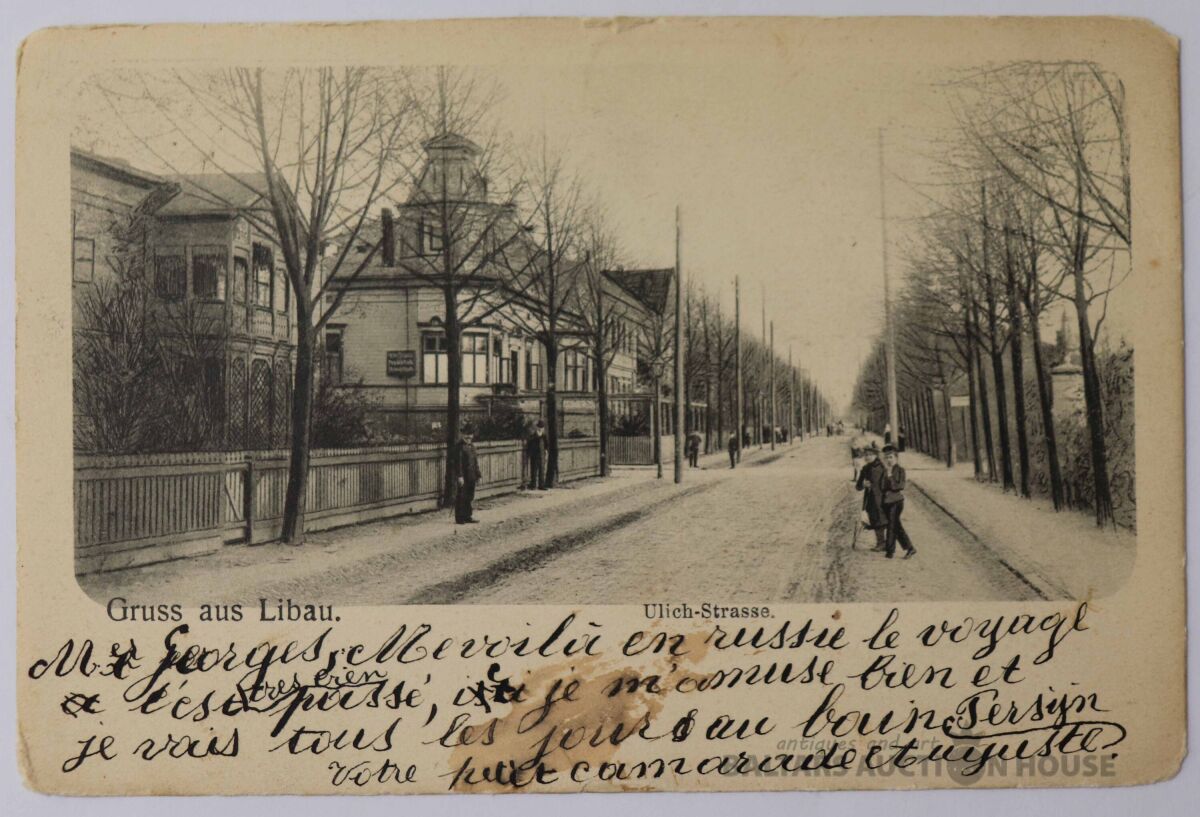 Gruss aus Libau.
Ulich-Strasse.
Mr Georges, Me voilà en russie le voyage
c'est très bien passé, ici je m'amuse bien et
je vais tous les jours au bain Persijn
votre petit camarade Auguste.
antiques and art
BALTARS AUCTION HOUSE